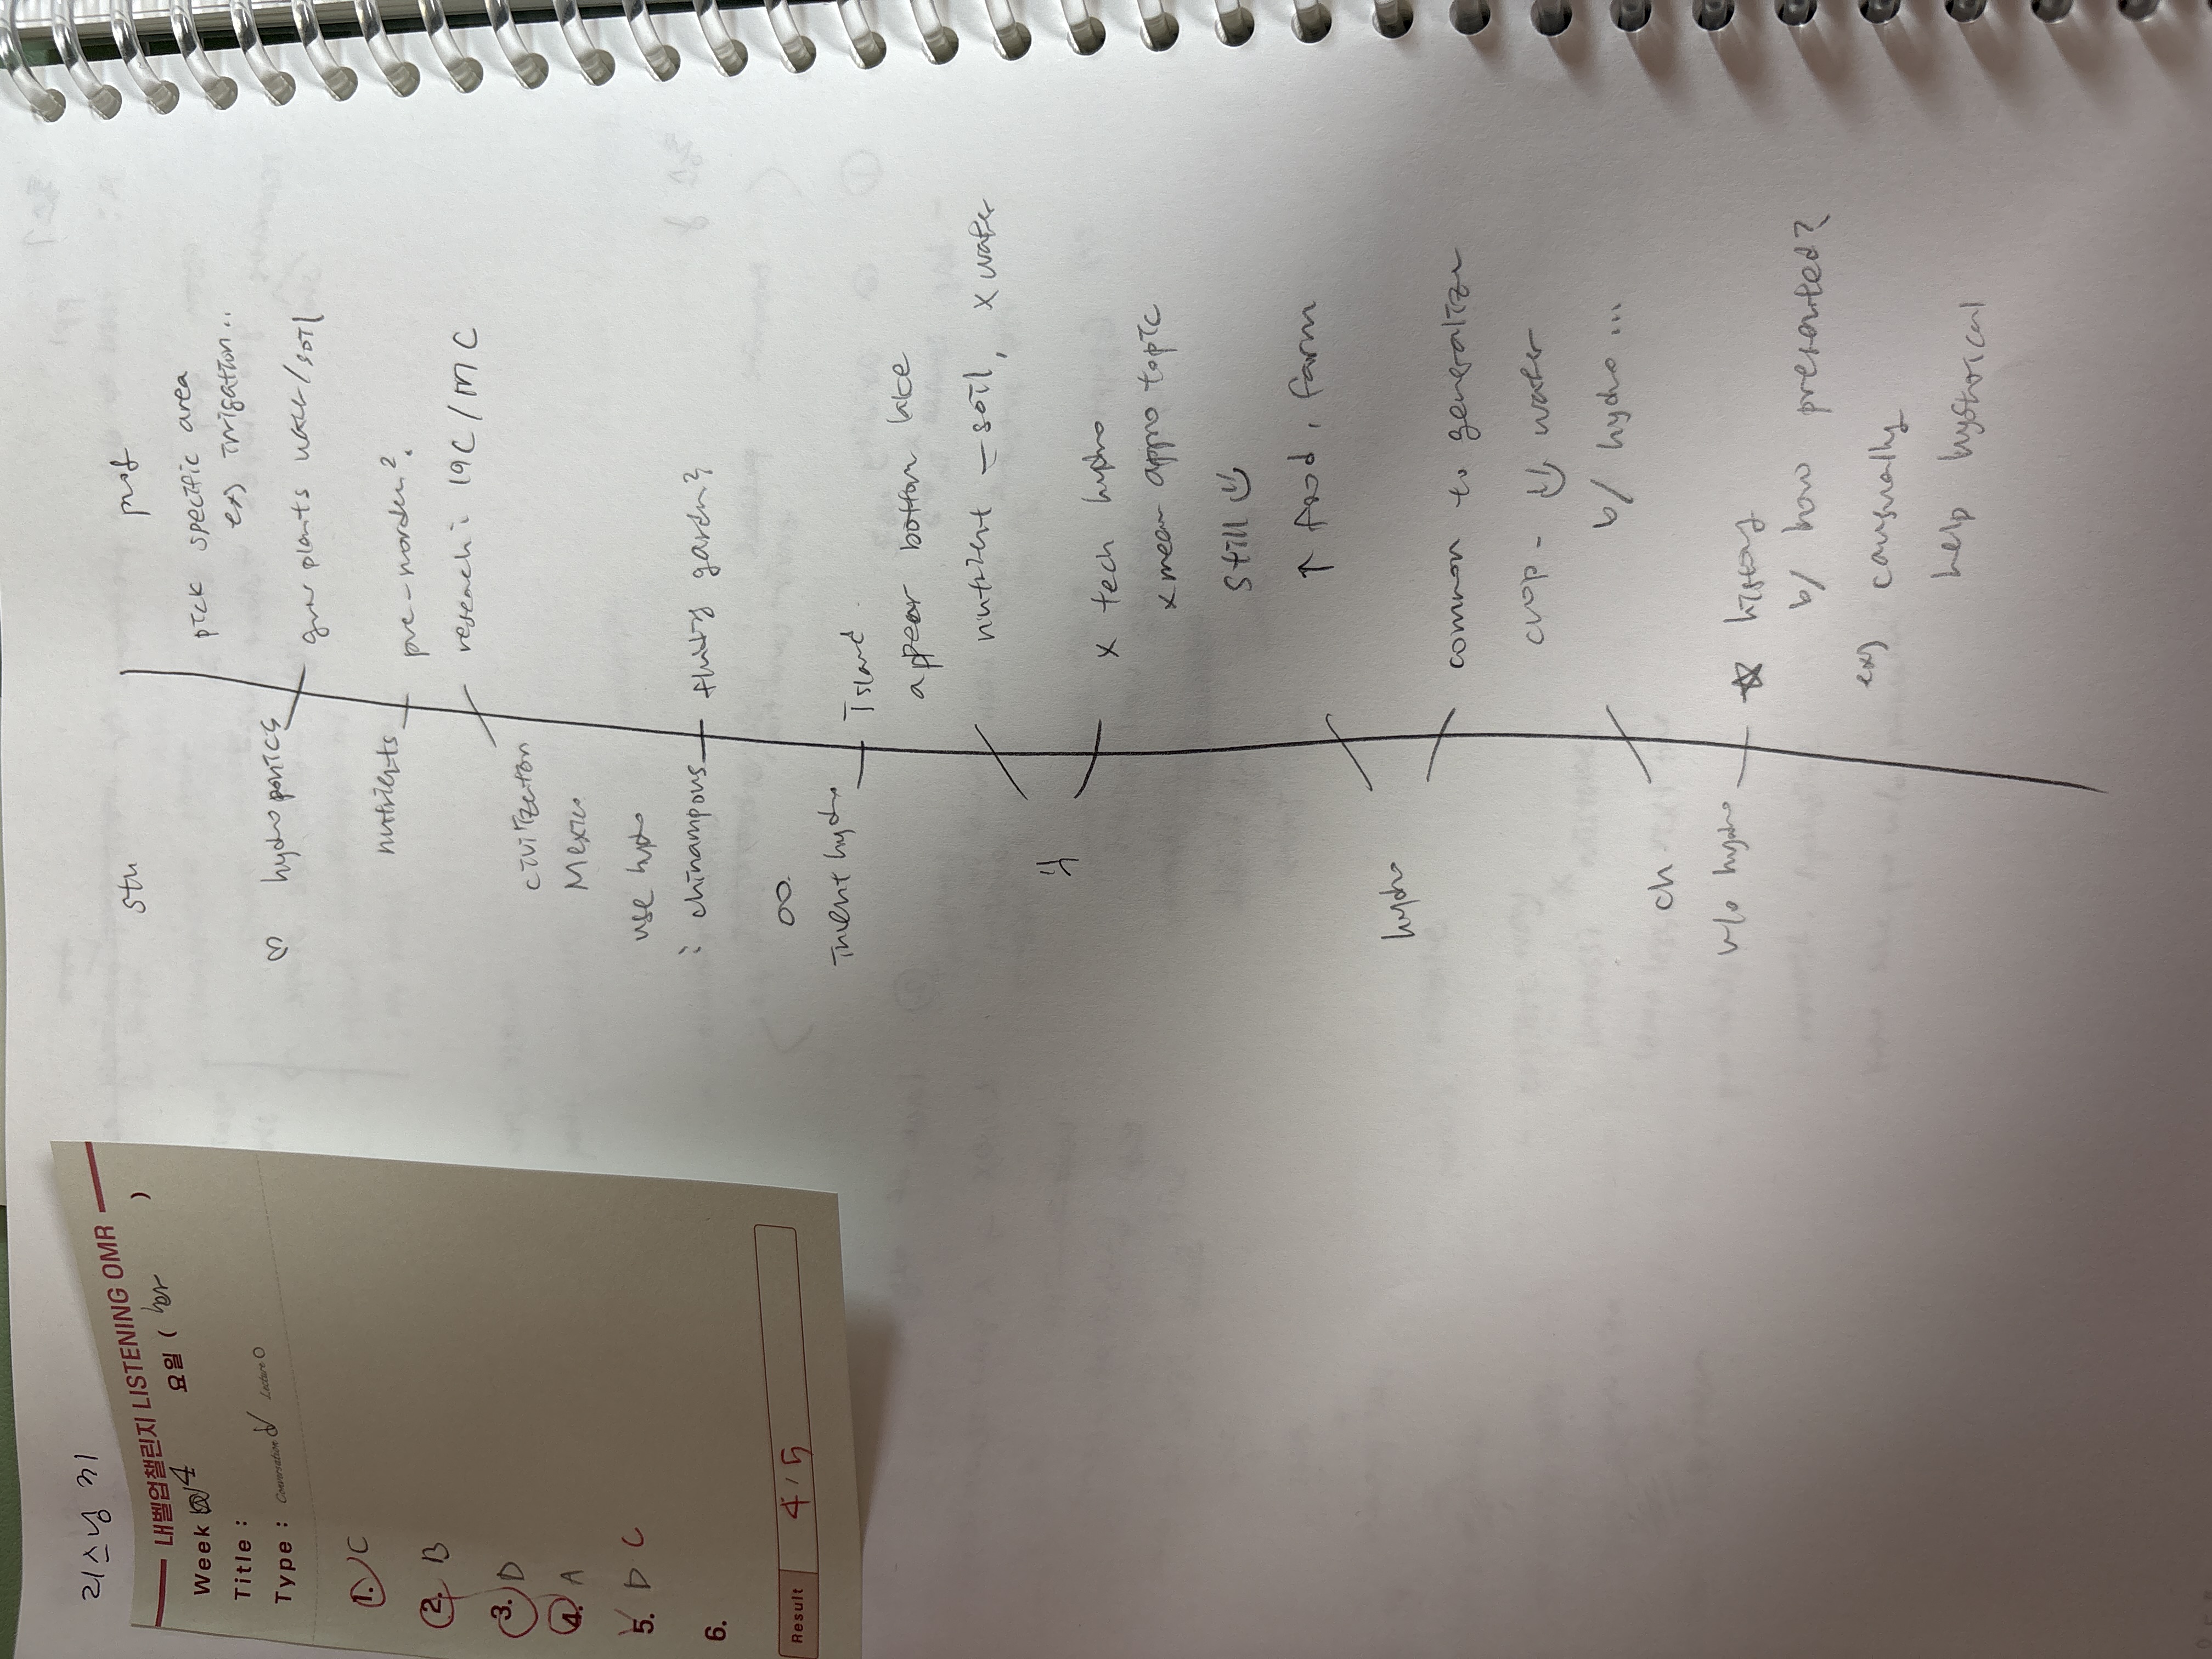 리스닝 31
내벨업챌린지 LISTENING OMR
Week 4 요일 ( )
Title :
Type : Conversation Lecture
1. C
2. B
3. D
4. A
5. D C
6.
Result 4 / 5
stu prof
pick specific area
ex) irrigation..
♡ hydroponics
grow plants water/soil
nutrients
pre-morden?
research : 19C / MC
civilization
Mexico
use hydro
: chinampous
floating garden?
oo.
Island
appear bottom lake
nutrient - soil, x water
x tech hydro
x mean appro topic
still
↑ food, farm
hydro
common to generalize
crop - water
b/ hydro ...
ch
w/o hydro
☆ history
b/ how presented?
ex) causually
help hystorical